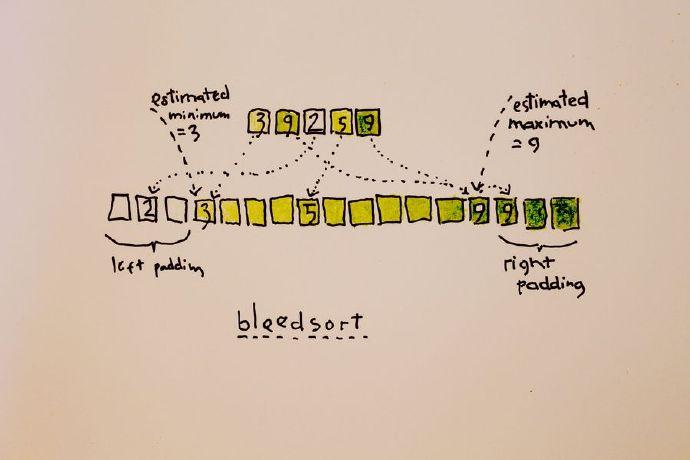 estimated
minimum
=3
3 9 2 5 9
estimated
maximum
= 9
2 3 5 9 9
left padding
right
padding
bleedsort